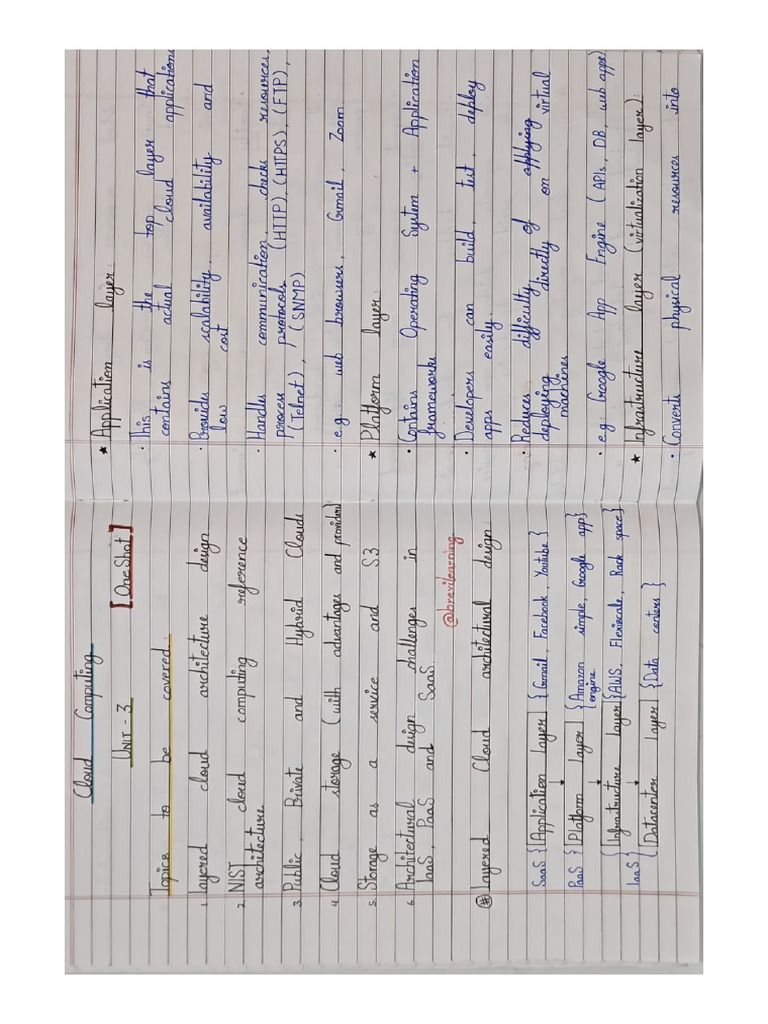 Cloud Computing
UNIT - 3
[OneShot]
Topics to be covered:
1. Layered cloud architecture design
2. NIST cloud computing reference
architecture.
3. Public, Private and Hybrid Clouds
4. Cloud storage (with advantages and providers)
5. Storage as a service and S3
6. Architectural design challenges in
IaaS, PaaS and SaaS.
@brevilearning
# Layered Cloud architectural design:
SaaS { Application Layer } {Gmail, Facebook, Youtube}
PaaS { Platform Layer } {Amazon simple, Google app}
engine
{ Infrastructure Layer } {AWS, Flexiscale, Rack space}
IaaS { Datacenter Layer } {Data centers}
★ Application layer:
• This is the top layer that
contains actual cloud applications
• Provides scalability, availability and
low cost
• Handles communication, checks resources,
process protocols (HTTP), (HTTPS), (FTP),
(Telnet), (SNMP)
• e.g: web browsers, Gmail, Zoom
★ Platform layer:
• Contains Operating System + Application
frameworks
• Developers can build, test, deploy
apps easily.
• Reduces difficulty of applying
deploying directly on virtual
machines
• e.g: Google App Engine (APIs, DB, web apps)
★ Infrastructure layer (virtualization layer):
• Converts physical resources into